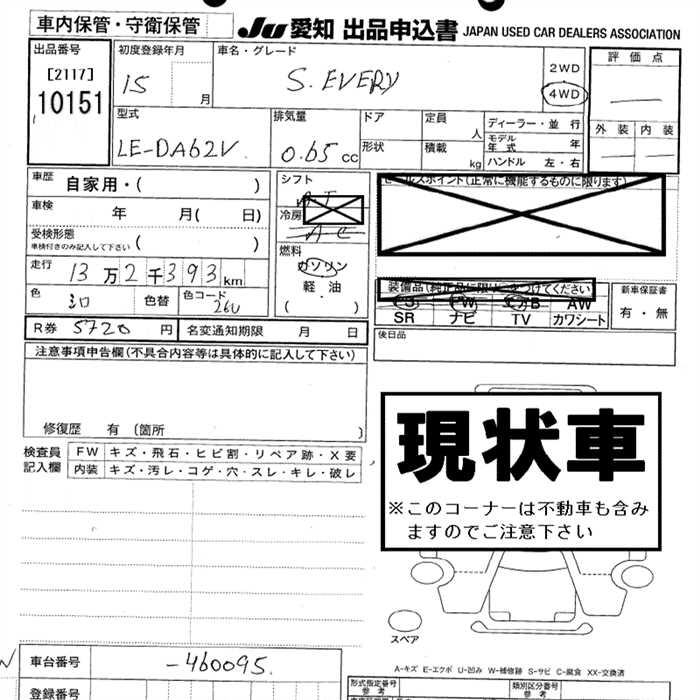 車内保管・守衛保管
JU 愛知 出品申込書 JAPAN USED CAR DEALERS ASSOCIATION
出品番号
[2117]
10151
初度登録年月
15 月
車名・グレード
S. EVERY
2WD
4WD
評価点
外装 内装
型式
LE-DA62V
排気量
0.65 cc
ドア
形状
定員 人
積載 kg
ディーラー・並行
モデル年式 年
ハンドル 左・右
車歴 自家用・( )
車検 年 月( 日)
受検形態
車検付きのみ記入して下さい ( )
走行 13万2千393km
色 シロ 色替 色コード 26U
R券 5720円 名変通知期限 月 日
シフト
AT
冷房
AC
燃料
ガソリン
軽・油
( )
セールスポイント(正常に機能するものに限ります)
装備品(純正品に限り○をつけてください)
PS PW エアB AW
SR ナビ TV カワシート
新車保証書
有・無
後日品
注意事項申告欄(不具合内容等は具体的に記入して下さい)
修復歴 有 〔箇所 〕
検査員記入欄
FW キズ・飛石・ヒビ割・リペア跡・X要
内装 キズ・汚レ・コゲ・穴・スレ・キレ・破レ
現状車
※このコーナーは不動車も含み
ますのでご注意下さい
スペア
A-キズ E-エクボ U-凹み W-補修跡 S-サビ C-腐食 XX-交換済
車台番号 -460095.
登録番号
形式指定番号
参考
類別区分番号
参考